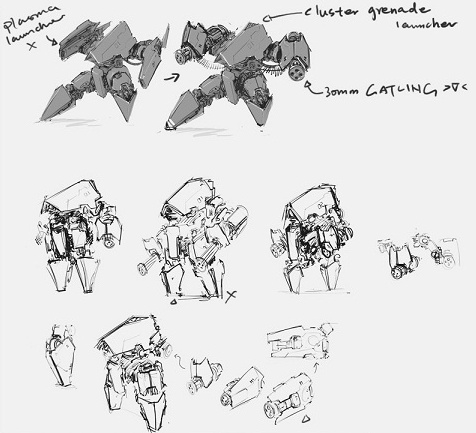 plasma
launcher
x
cluster grenade
launcher
30mm GATLING >∇<
x